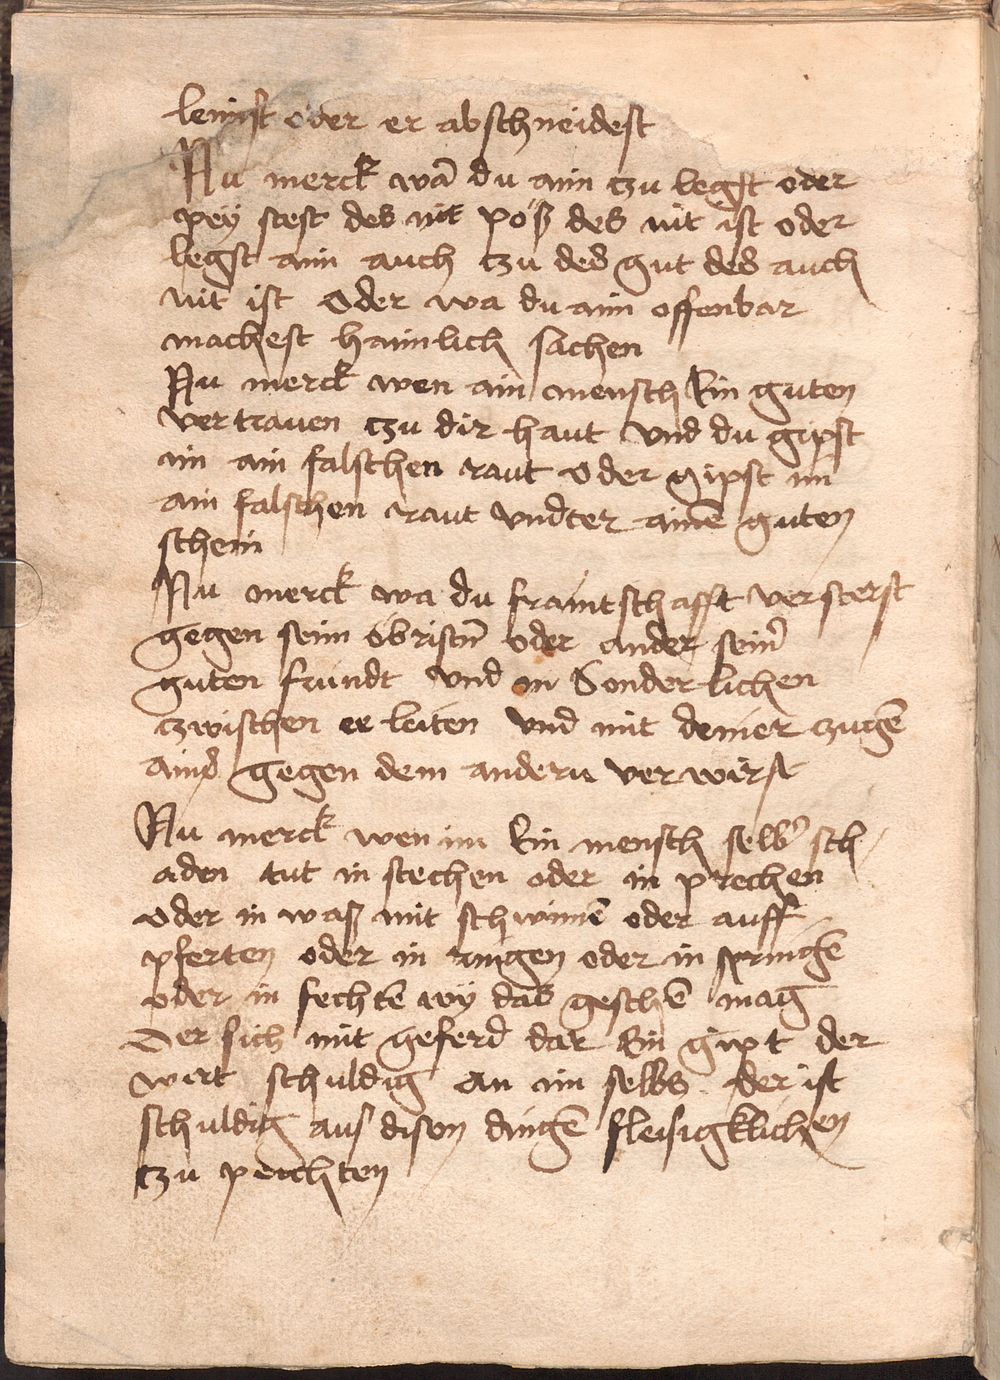 lemst oder er abschneidest
Nu merck wā du aim czu legst oder
pey stest des nit poß des nit ist oder
legst aim auch czu des gut des auch
nit ist Oder wa du aim offenbar
machest haimlich sachen
Nu merck wen ain mensch Ein guten
vertrauen czu dir haut vnd du gipst
im ain falschen raut oder gipst im
ain falschen raut vndter ainē guten
schein
Nu merck wa du fraintschafft versterst
gegen seim öbristn̄ oder ander sein̄
guten frundt vnd in Sonderlichen
czwischen ee leiten vnd mit deiner czūgē
ains gegen dem andern verwirst
Nu merck wen im Ein mensch selbs sch
aden tut in stechen oder in prechen
oder in waß mit schwimē oder auff
pferten oder in ringen oder in springē
oder in fechtē wÿ das geschē mag
Der sich mit geferd dar Ein gipt der
wirt schuldig an im selbs der ist
schuldig aus disen dingē fleisigklichen
czu peichten